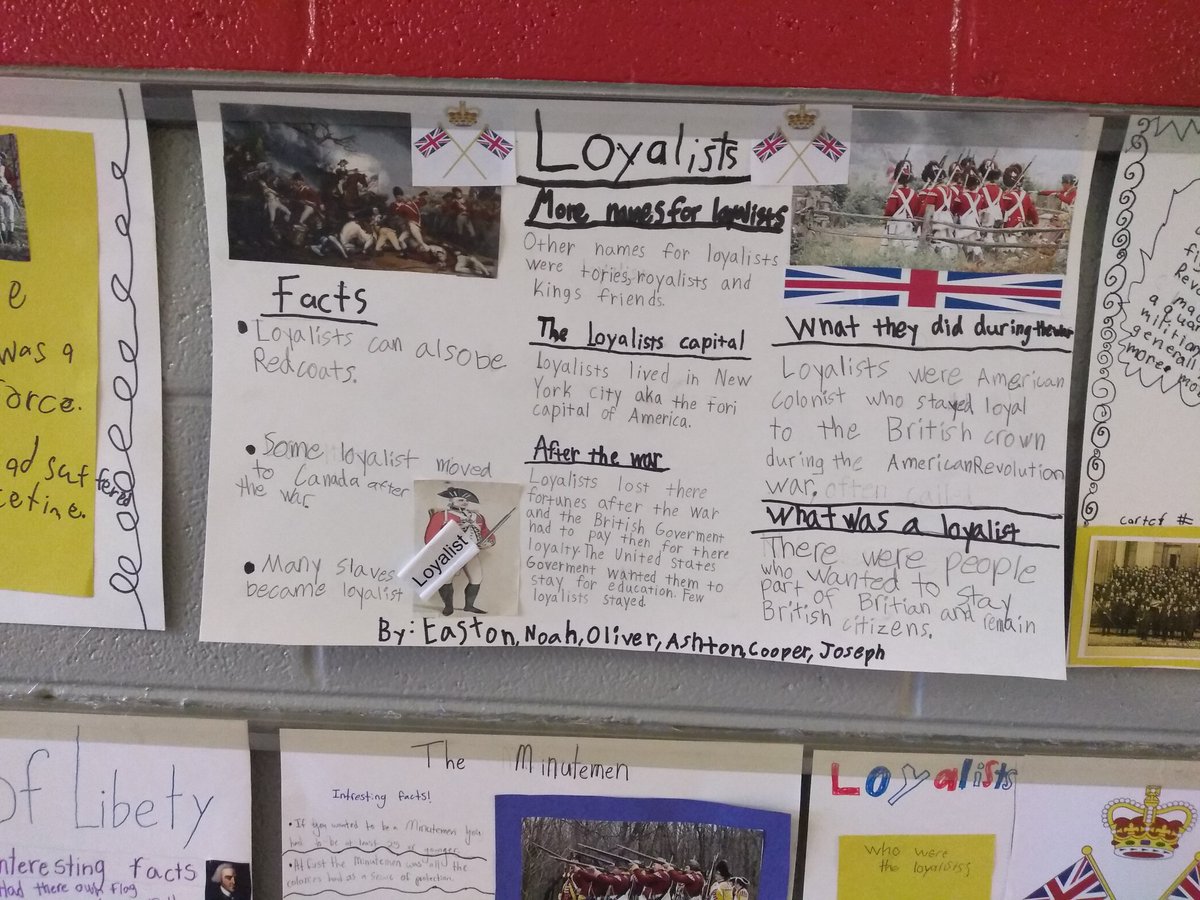 Loyalists
More names for loyalists
Other names for loyalists
were tories, royalists and
Kings friends.
The Loyalists capital
Loyalists lived in New
York city aka the tori
capital of America.
After the war
Loyalists lost there
fortunes after the war
and the British Goverment
had to pay then for there
loyalty. The United States
Goverment wanted them to
stay for education. Few
loyalists stayed.
Facts
Loyalists can also be
Redcoats.
Some loyalist moved
to Canada after
the war.
Many slaves
became loyalist
Loyalist
What they did during the war
Loyalists were American
colonist who stayed loyal
to the British crown
during the American Revolution
war. often
What was a loyalist
There were people
who wanted to stay
part of Britian and remain
British citizens.
By: Easton, Noah, Oliver, Ashton, Cooper, Joseph
e
was a
orce.
ad suffered
cetine.
Revo
a qua
militian
generall
more mo
of Libety
nteresting facts
Had there own flag
The Minutemen
Intresting facts!
If you wanted to be a Minutemen you
had to be at least 25 or younger
At first the Minutemen was all the
colonies had as a sence of protection.
Loyalists
Who were
the loyalists?